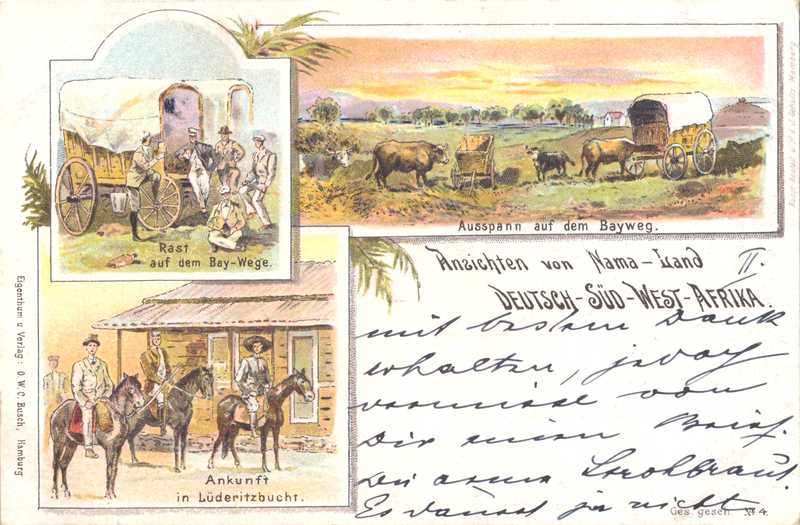 Rast
auf dem Bay-Wege.
Ausspann auf dem Bayweg.
Ansichten von Nama-Land
II.
DEUTSCH-SÜD-WEST-AFRIKA.
mit bestem Dank
erhalten, jedoch
vermisse von
Dir einen Brief.
Du arme Strohbraut.
Es dauert ja nicht
Ankunft
in Lüderitzbucht.
Eigenthum u Verlag: O.W.C. Busch, Hamburg
Ges. gesch. № 4.